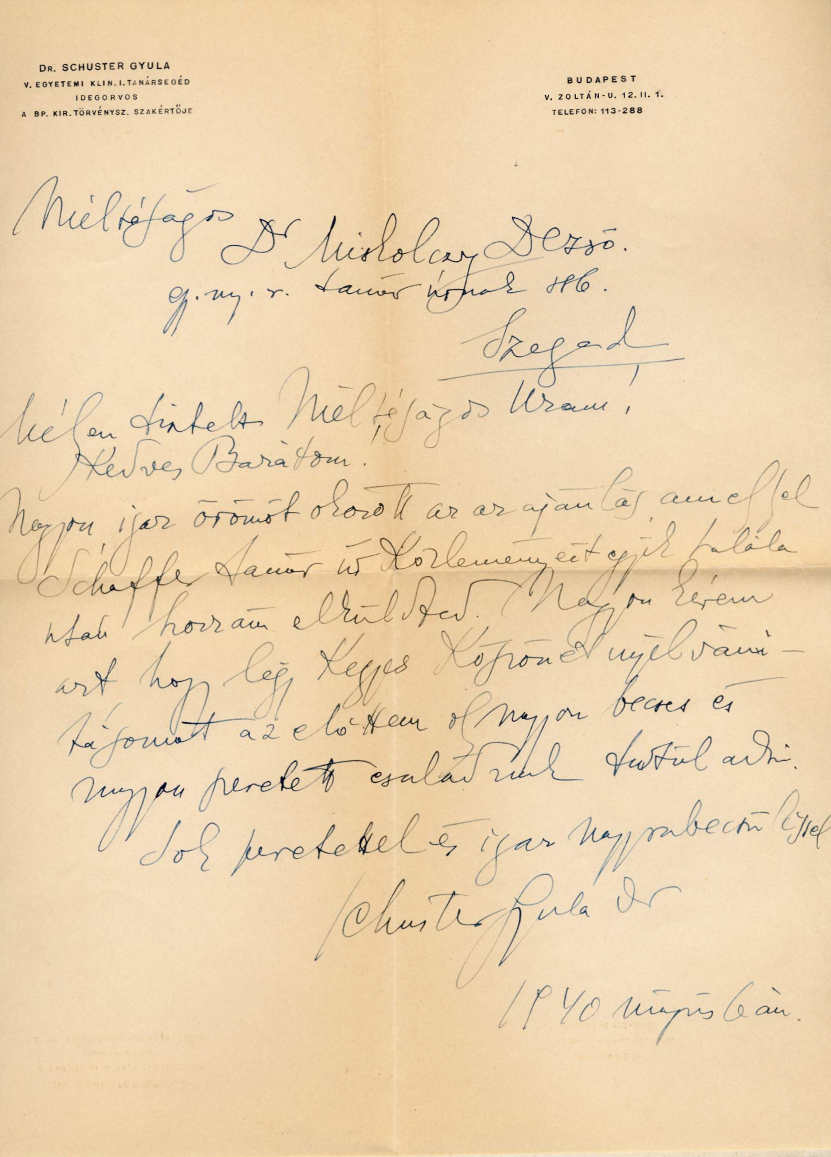 DR. SCHUSTER GYULA
V. EGYETEMI KLIN. I. TANÁRSEGÉD
IDEGORVOS
A BP. KIR. TÖRVÉNYSZ. SZAKÉRTŐJE
BUDAPEST
V. ZOLTÁN-U. 12. II. 1.
TELEFON: 113-288
Méltóságos
Dr Miskolczy Dezső.
egy. ny. r. tanár úrnak stb.
Szeged
Mélyen tisztelt Méltóságos Uram!
Kedves Barátom.
Nagyon igaz örömöt okozott az az ajánlás amellyel
Schaffer tanár úr Közleményeit egyik halála
után hozzám elküldted. Nagyon kérem
azt, hogy légy Kegyes Köszönet nyilvání-
tásomat az előttem oly nagyon becses és
nagyon szeretett családnak tudtul adni.
Sok szeretettel és igaz nagyrabecsüléssel
Schuster Gyula Dr
1940 május 6 án.